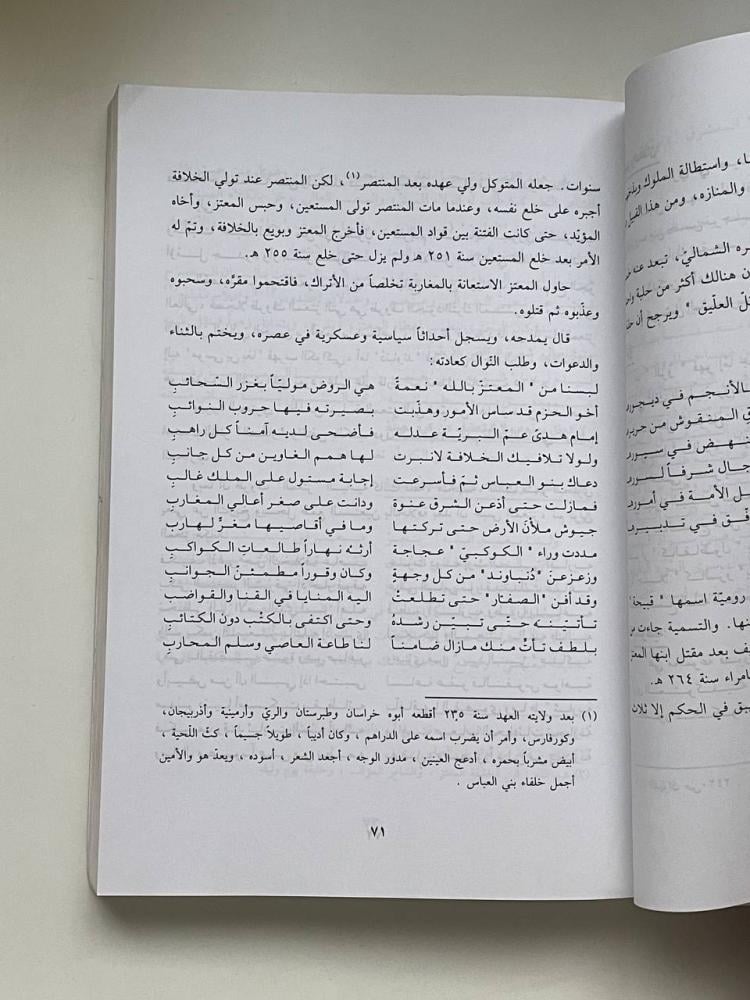 سنوات. جعله المتوكل ولي عهده بعد المنتصر(١)، لكن المنتصر عند تولي الخلافة
أجبره على خلع نفسه، وعندما مات المنتصر تولى المستعين، وحبس المعتز، وأخاه
المؤيّد، حتى كانت الفتنة بين قواد المستعين، فأخرج المعتز وبويع بالخلافة، وتمّ له
الأمر بعد خلع المستعين سنة ٢٥١ هـ ولم يزل حتى خلع سنة ٢٥٥ هـ.
حاول المعتز الاستعانة بالمغاربة تخلصاً من الأتراك، فاقتحموا مقرّه، وسحبوه
وعذّبوه ثم قتلوه.
قال يمدحه، ويسجل أحداثاً سياسية وعسكرية في عصره، ويختم بالثناء
والدعوات، وطلب النّوال كعادته:
لبسنا من " المعتزّ بالله " نعمةً هي الروض موليّاً بغزر السّحائبِ
أخو الحزم قد ساس الأمور وهذّبت بصيرته فيها حروب النوائبِ
إمام هدىً عمّ البريّة عدله فأضحى لديه آمناً كل راهبِ
ولولا تلافيك الخلافة لانبرت لها همم الغاوين من كل جانبِ
دعاك بنو العباس ثمّ فأسرعت إجابة مستول على الملك غالبِ
فمازلت حتى أذعن الشرق عنوة ودانت على صغر أعالي المغاربِ
جيوش ملأنَ الأرض حتى تركتها وما في أقاصيها مغزّ لهاربِ
مددت وراء " الكوكبي " عجاجة أرتْه نهاراً طالعاتِ الكواكبِ
وزعزعن " دُنباوند " من كل وجهةٍ وكان وقوراً مطمئنّ الجوانبِ
وقد أفن " الصفّار " حتى تطلعتْ اليه المنايا في القنا والقواضبِ
تأتيته حتّى تبيّن رشدهُ وحتى اكتفى بالكتْب دون الكتائبِ
بلطف تأتْ منك مازال ضامناً لنا طاعة العاصي وسلم المحاربِ
(١) بعد ولايته العهد سنة ٢٣٥ أقطعه أبوه خراسان وطبرستان والريّ وأرمينية وأذربيجان،
وكورفارس، وأمر أن يضرب اسمه على الدراهم ، وكان أديباً ، طويلاً جسيماً ، كثّ اللّحية ،
أبيض مشرباً بحمره ، أدعج العينين ، مدور الوجه ، أجعد الشعر ، أسوده ، ويعدّ هو والأمين
أجمل خلفاء بني العباس .
٧١
واستطالة الملوك
والمنازه، ومن هذا
الشماليّ، تبعد عنه
هنالك أكثر من حلبة
العلّيق " ويرجح أن
الأنجم في
المنقوش من
جال شرفاً
الأمة في
في
روميّة اسمها " قبيحة
والتسمية جاءت
بعد مقتل ابنها
سنة ٢٦٤ هـ.
في الحكم إلا ثلاث